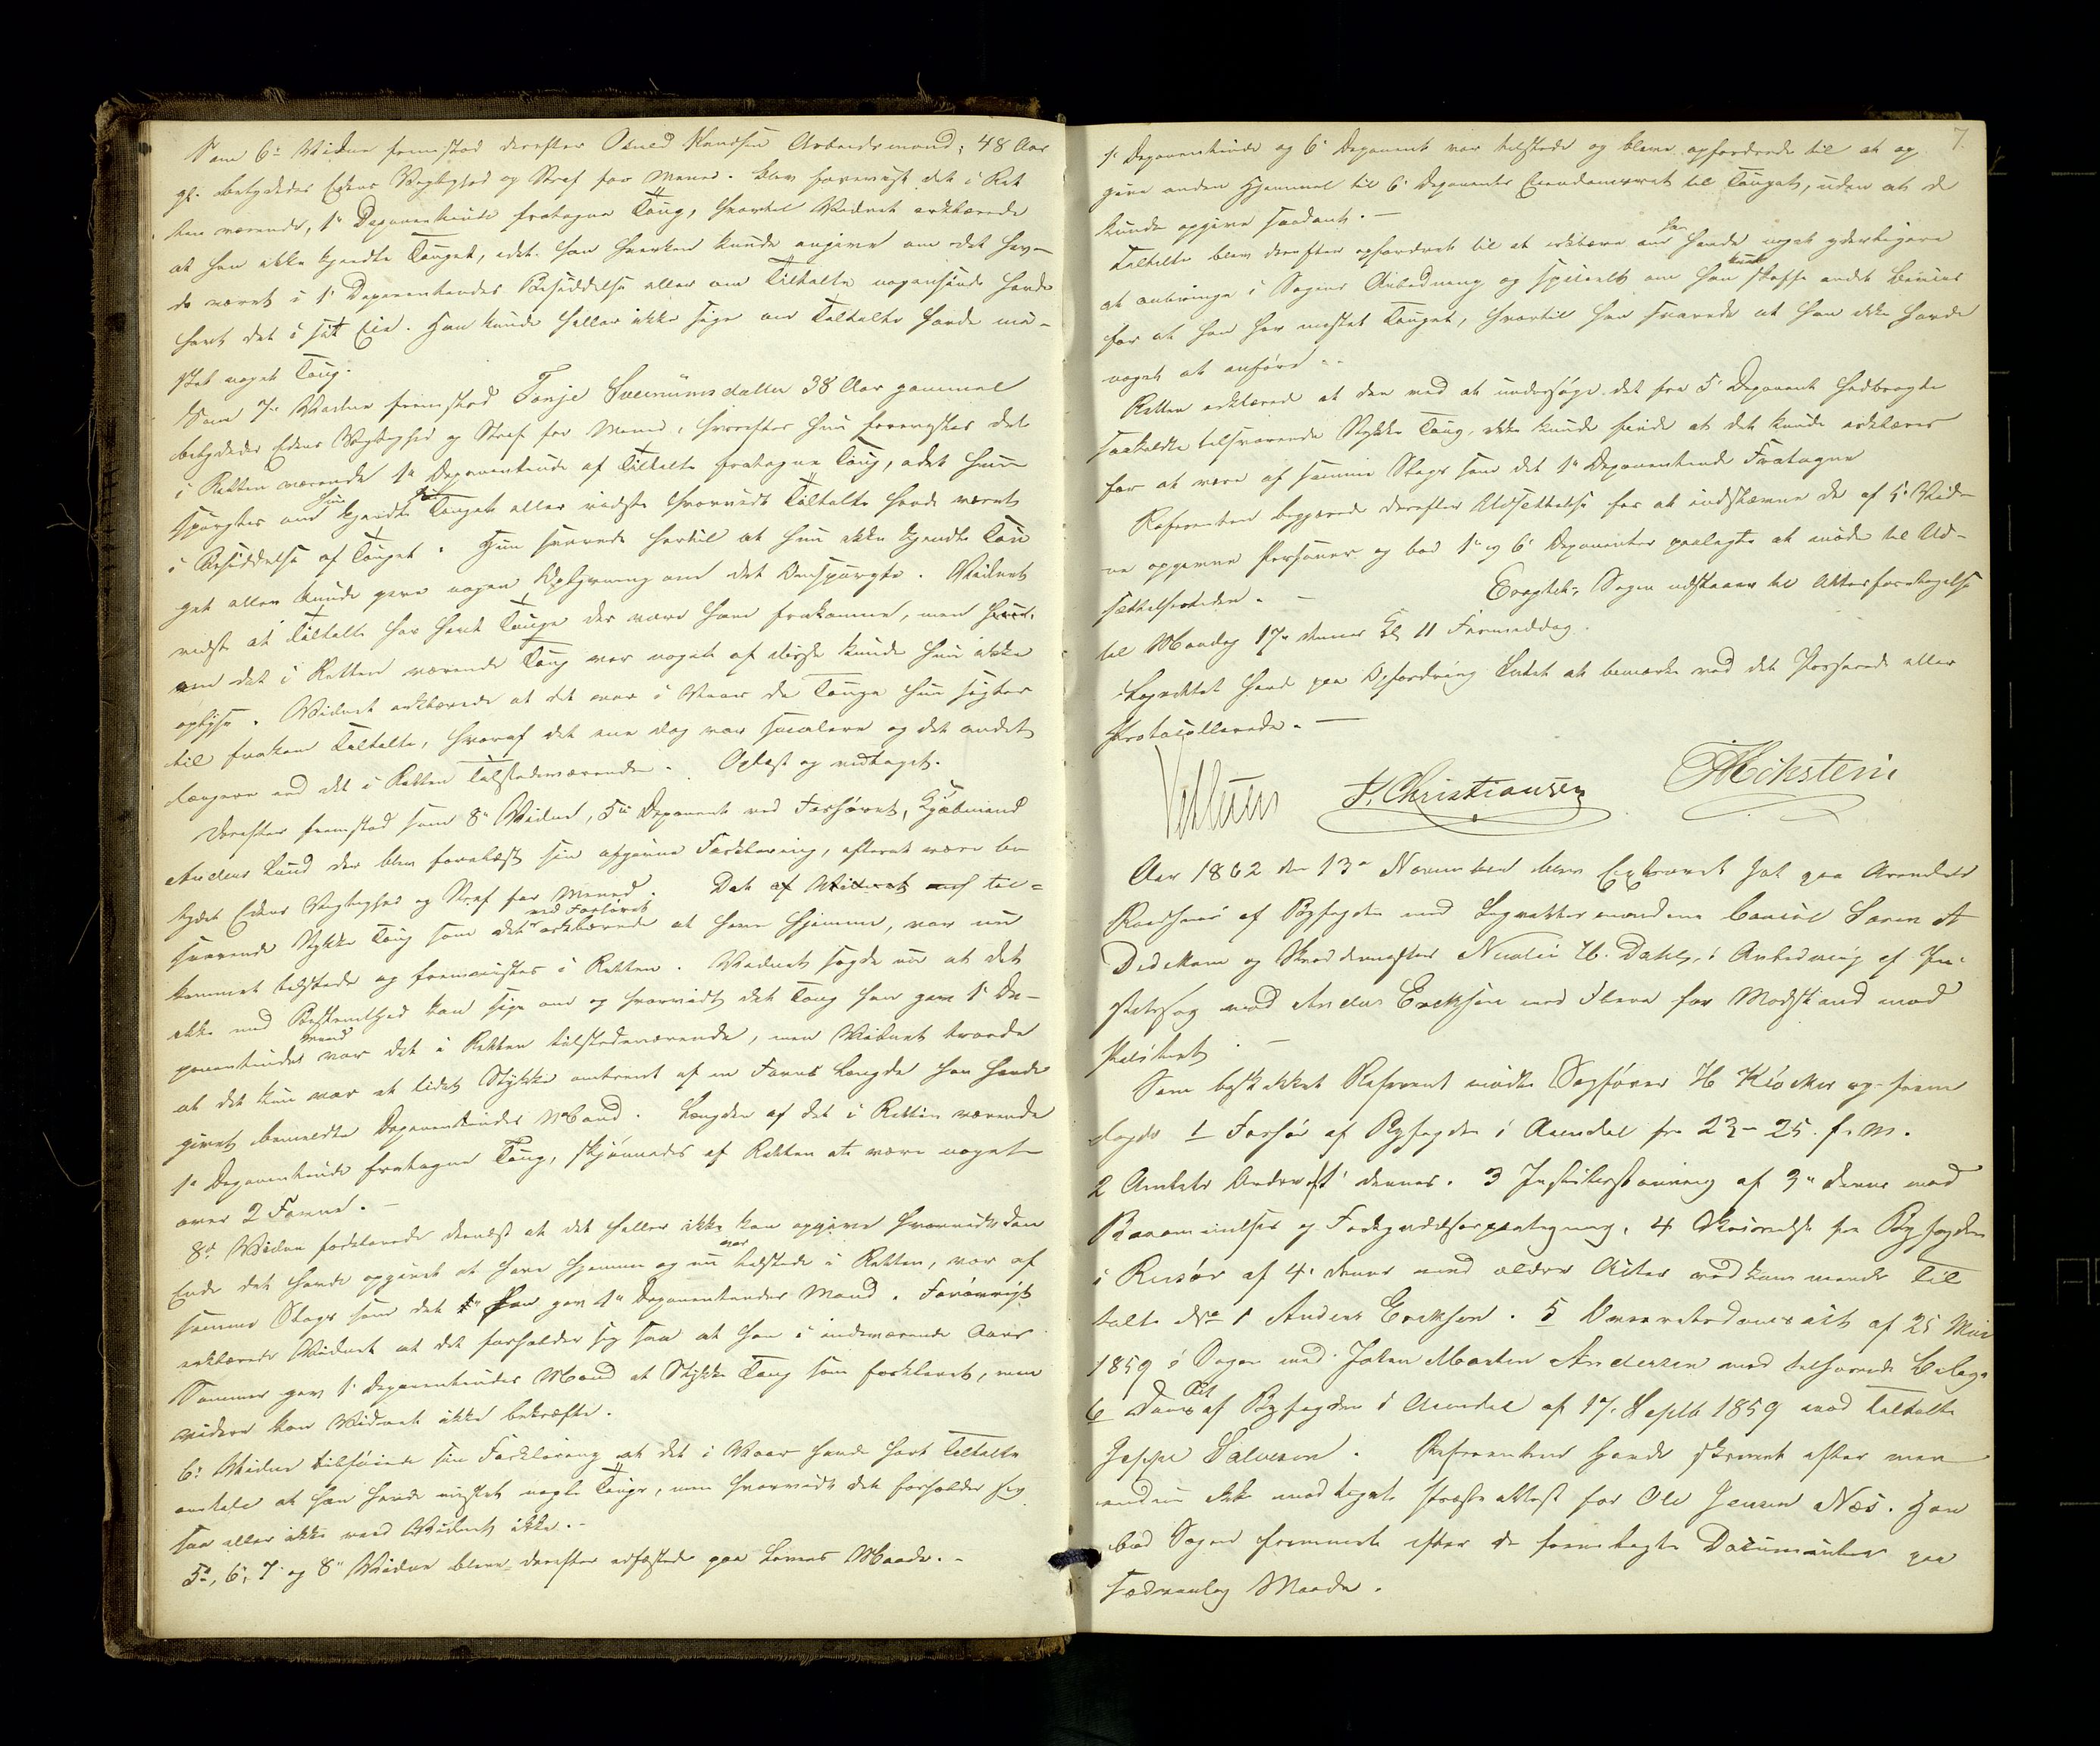 Som 6e Vidne fremstod derefter Osuld Knudsen Arbeidsmand, 48 Aar
gl. betydedes Edens Vigtighed og Straf for Meened. Blev forevist det i Ret
ten værende, 1e Deponentinde fratagne Toug, hvortil Vidnet erklærede
at han ikke kjendte Touget, idet han hverken kunde angive om det hav-
de været i 1e Deponentindes Besiddelse eller om Tiltalte nogensinde havde
havt det i sit Eie. Han kunde heller ikke sige om Tiltalte havde mi-
stet noget Toug.
Som 7e Vidne fremstod Tonje Sveinumsdatter 38 Aar gammel
betydedes Edens Vigtighed og Straf for Meened, hvorefter hun forevistes det
i Retten værende 1e Deponentinde af Tiltalte fratagne Toug, idet hun
spurgtes om hun kjendte Touget eller vidste hvorvidt Tiltalte havde været
i Besiddelse af Touget. Hun svarede hertil at hun ikke kjendte Tou
get eller kunde give nogen Oplysning om det Omspurgte. Vidnet
vidste at Tiltalte har havt Touge der vare ham frakomne, men
om det i Retten værende Toug var noget af disse kunde hun ikke
oplyse. Vidnet erklærede at det var i Vaar de Touge hun sigter
til frakom Tiltalte, hvoraf det ene slag var smalere og det andet
længere end det i Retten Tilstedeværende. Oplæst og vedtaget.
Derefter fremstod som 8e Vidne, 5te Deponent ved Forhøret, Kjøbmand
Anders Lund der blev forelæst sin afgivne Forklaring, efterat være be
tydet Edens Vigtighed og Straf for Meened. Det af Vidnet til-
svarende Stykke Toug som det ved Forhøret erklærede at have hjemme, var nu
kommet tilstede og fremvistes i Retten. Vidnet sagde nu at det
ikke med Bestemthed kan sige om og hvorvidt det Toug han gav 1e De-
ponentindes Mand var det i Retten tilstedeværende, men Vidnet troede
at det kun var et lidet Stykke omtrent af en Favns Længde han havde
givet bemeldte Deponentindes Mand. Længden af det i Retten værende
1e Deponentinde fratagne Toug, skjønnedes af Retten at være noget
over 2 Favne. -
8de Vidne forklarede dernæst at det heller ikke kan opgive hvorvidt den
Ende det havde opgivet at have hjemme og nu var tilstede i Retten, var af
samme Slags som det han gav 1e Deponentindes Mand. Forøvrigt
erklærede Vidnet at det forholder sig saa at han i indeværende Aars
Sommer gav 1e Deponentindes Mand et Stykke Toug som forklaret, men
videre kan Vidnet ikke bekræfte.
6e Vidne tilføiede sin Forklaring at det i Vaar havde hørt Tiltalte
omtale at han havde mistet nogle Touge, men hvorvidt det forholder sig
saa eller ikke veed Vidnet ikke. -
5e, 6e, 7e og 8e Vidne bleve derefter edfæstede paa Lovens Maade. -
7.
1e Deponentinde og 6e Deponent var tilstede og bleve opfordrede til at op
give anden Hjemmel til 6e Deponents Eiendomsret til Touget, uden at de
kunde opgive saadant. -
Tiltalte blev derefter opfordret til at erklære om han havde noget yderligere
at anbringe i Sagens Anledning og specielt om han kunde skaffe andet Beviis
for at han har mistet Touget, hvortil han svarede at han ikke havde
noget at anføre. -
Retten erklærede at den ved at undersøge det fra 5e Deponent hidbragte
saakaldte tilsvarende Stykke Toug, ikke kunde finde at det kunde erklæres
for at være af samme Slags som det 1e Deponentinde Fratagne
Referenten begjærede derefter Udsættelse for at indstævne de af 5e Vid-
ne opgivne Personer og bad 1e og 6e Deponenter paalagte at møde til Ud-
sættelsestiden. - Eragtet: Sagen udstaaer til Atterforetagelse
til Mandag 17e dennes Kl 11 Formiddag.
Lagrettet havde paa Opfordring Intet at bemærke ved det Passerede eller
Protocollerede. -
F. Christiansen
Aar 1862 den 13e November blev Extraret sat paa Arendals
Raadhuus af Byfogden med Lagrettesmændene Consul Søren A
Dedekam og Skræddermester Nicolai H. Dahl, i Anledning af Ju-
stitssag mod Anders Eriksen med Flere for Modstand mod
Politiet. -
Som beskikket Referent mødte Sagfører H Kløcker og frem
lagde 1 Forhør af Byfogden i Arendal fra 23 - 25. f. M.
2 Amtets Ordre dennes. 3 Justitsstævning af 3e dennes med
Berammelses og Forkyndelsespaategning. 4 Skrivelse fra Byfogden
i Risør af 4e dennes med ældre Acter vedkommende Til
talte No 1 Anders Eriksen. 5 Overretsdomsact af 25 Mai
1859 i Sagen mod Johan Martin Andersen med tilhørende Bilage
6 Domsact af Byfogden i Arendal af 17. Septb 1859 mod Tiltalte
Jeppe Salvesen. Referenten havde skrevet efter men
endnu ikke modtaget Præsteattest for Ole Jensen Næs. Han
bad Sagen fremmet efter de fremlagte Documenter paa
sædvanlig Maade.